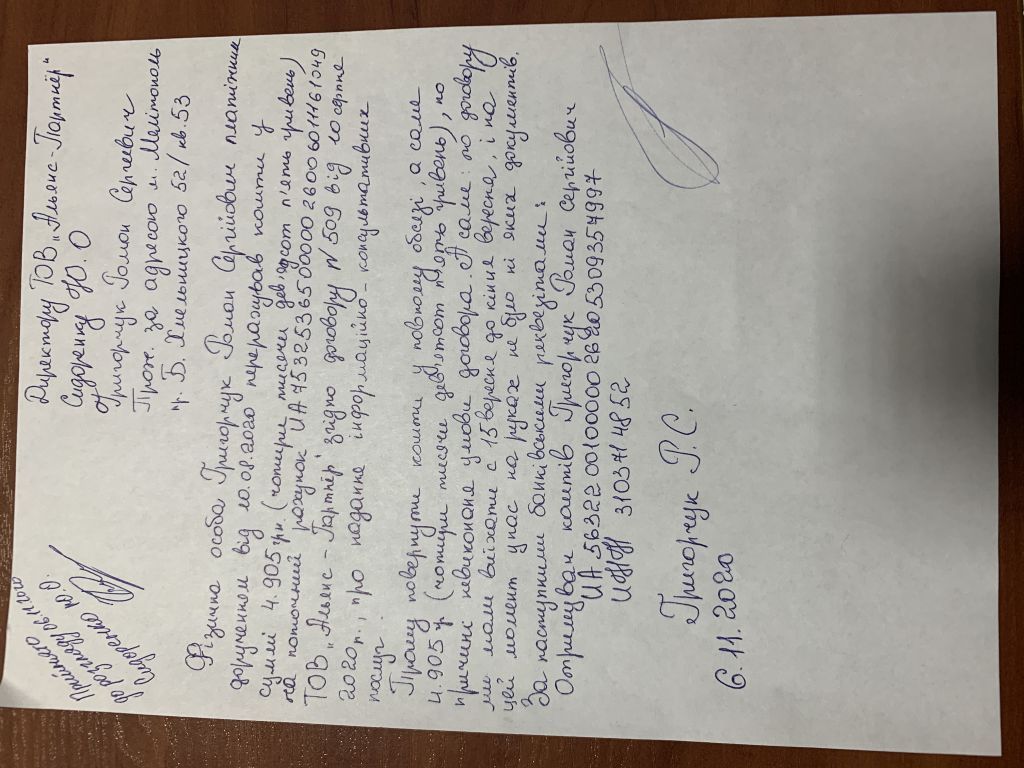 Директору ТОВ „Альянс-Партнёр"
Сидоренку Ю.О
Григорчук Роман Сергеевич
Прож. за адресою м. Мелітополь
пр. Б. Хмельницкого 52/кв.53
Прийнято
до розгляду
Сидоренко Ю.О.
Фізична особа Григорчук Роман Сергійович платіжним
дорученнем від 10.08.2020 перерахував кошти у
суммі 4.905 гр. (чотири тисячи девятсот п'ять гривень)
на поточний рахунок UA 753253650000002600601161049
ТОВ „Альянс-Партнёр" згідно договору №509 від 10 серпня
2020 р., про надання інформаційно-консультативних
послуг.
Прошу повернути кошти у повному обсязі, а саме
4.905 гр (чотири тисячи девятсот п'ять гривень), по
причине невиконаня умови договора. А саме: по договору
ми мали виїхати с 15 вересня до кінця вересня, і на
цей момент у нас на руках не було ні яких документів.
За наступними банківськими реквезітами:
Отримувач коштів Григорчук Роман Сергійович
UA 563220010000026205309357497
ИНН 3103714852
Григорчук Р.С.
6.11.2020